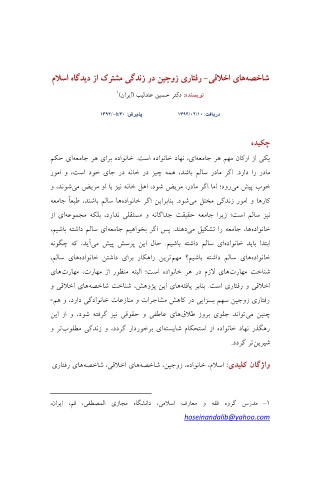 شاخصه‌های اخلاقی- رفتاری زوجین در زندگی مشترک از دیدگاه اسلام
نویسنده: دکتر حسین عندلیب (ایران)۱
دریافت: ۱۳۹۳/۰۲/۱۰ پذیرش: ۱۳۹۳/۰۵/۳۰
چکیده
یکی از ارکان مهم هر جامعه‌ای، نهاد خانواده است. خانواده برای هر جامعه‌ای حکم
مادر را دارد. اگر مادر سالم باشد، همه چیز در خانه در جای خود است، و امور
خوب پیش می‌رود؛ اما اگر مادر، مریض شود، اهل خانه نیز یا او مریض می‌شوند، و
کارها و امور زندگی مختل می‌شود. بنابراین اگر خانواده‌ها سالم باشند، طبعاً جامعه
نیز سالم است؛ زیرا جامعه حقیقت جداگانه و مستقلی ندارد، بلکه مجموعه‌ای از
خانواده‌ها، جامعه را تشکیل می‌دهند. پس اگر بخواهیم جامعه‌ای سالم داشته باشیم،
ابتدا باید خانواده‌ای سالم داشته باشیم. حال این پرسش پیش می‌آید، که چگونه
خانواده‌های سالم داشته باشیم؟ مهم‌ترین راهکار برای داشتن خانواده‌های سالم،
شناخت مهارت‌های لازم در هر خانواده است؛ البته منظور از مهارت، مهارت‌های
اخلاقی و رفتاری است. بنابر یافته‌های این پژوهش، شناخت شاخصه‌های اخلاقی و
رفتاری زوجین سهم بسزایی در کاهش مشاجرات و منازعات خانوادگی دارد، و هم-
چنین می‌تواند جلوی بروز طلاق‌های عاطفی و حقوقی نیز گرفته شود، و از این
رهگذر نهاد خانواده از استحکام شایسته‌ای برخوردار گردد، و زندگی مطلوب‌تر و
شیرین‌تر گردد.
واژگان کلیدی: اسلام، خانواده، زوجین، شاخصه‌های اخلاقی، شاخصه‌های رفتاری
۱- مدرس گروه فقه و معارف اسلامی، دانشگاه مجازی المصطفی، قم، ایران،
hoseinandalib@yahoo.com